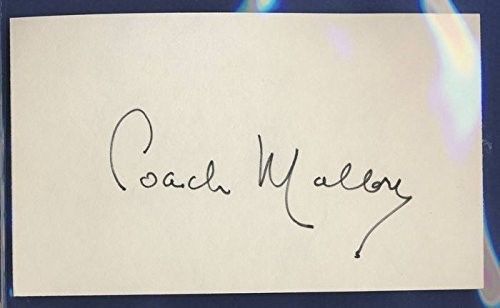 Coach Mallory